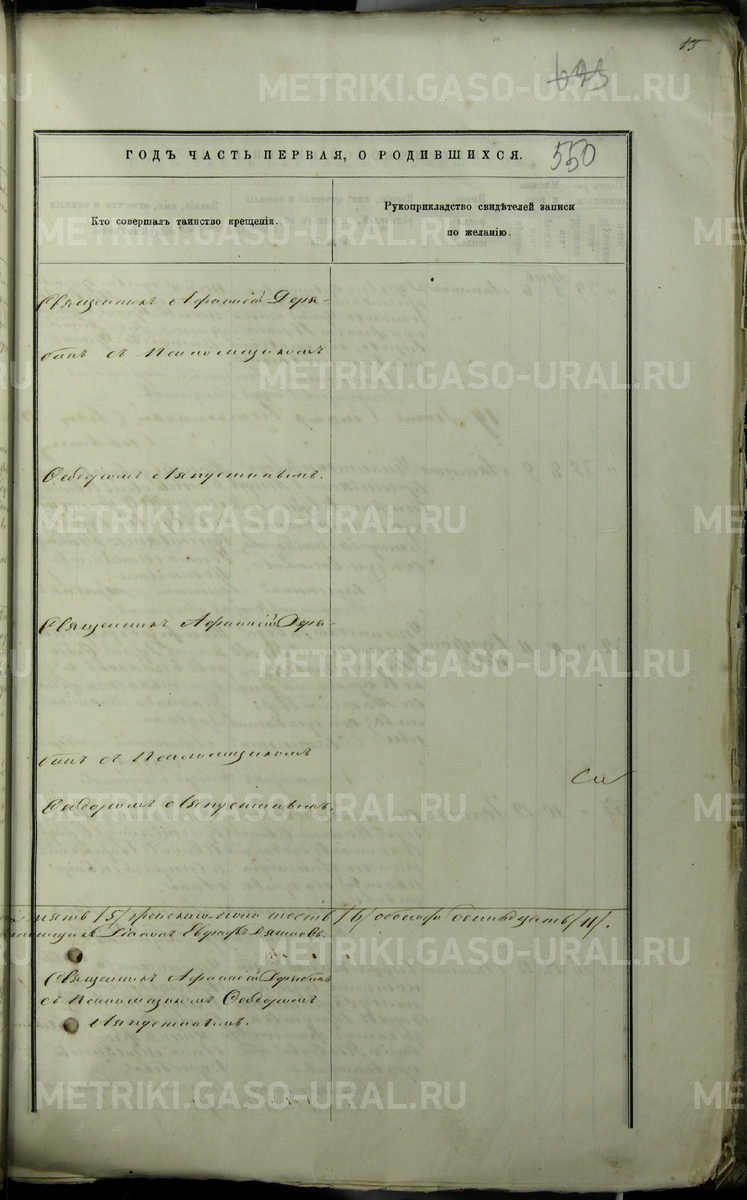 15
695
METRIKI.GASO-URAL.RU
ГОДЪ ЧАСТЬ ПЕРВАЯ, О РОДИВШИХСЯ.
550
Кто совершалъ таинство крещенія.
Рукоприкладство свидѣтелей записи
по желанію.
Священникъ Афанасій Деря-
бинъ съ Псаломщикомъ
Ѳеодоромъ Ляпустинымъ.
Священникъ Афанасій Деря-
бинъ съ Псаломщикомъ
Ѳеодоромъ Ляпустинымъ.
пять /5/ женскаго пола шесть /6/ обоего одинадцать /11/.
Евграфъ
Священникъ Афанасій Дерябинъ
съ Псаломщикомъ Ѳеодоромъ
Ляпустинымъ.
METRIKI.GASO-URAL.RU